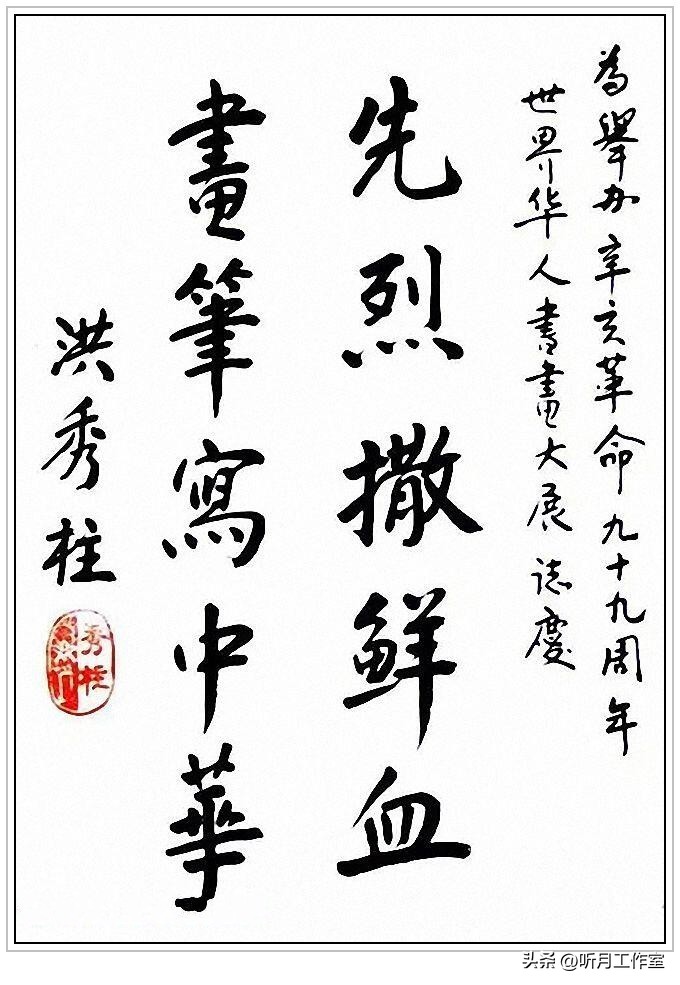 為舉办辛亥革命九十九周年
世界华人書畫大展誌慶
先烈撒鮮血
畫筆寫中華
洪秀柱
秀柱
头条 @听月工作室